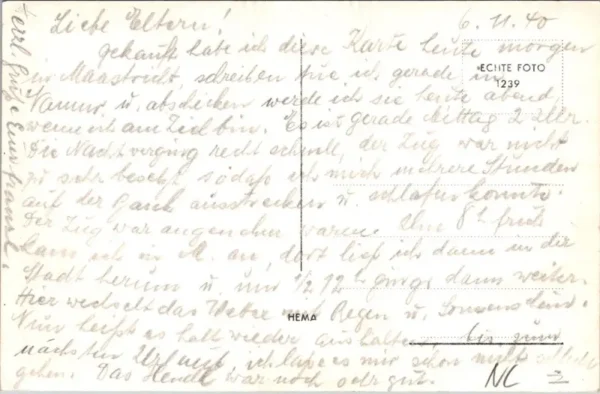 6.11.40
Liebe Eltern!
Gekauft habe ich diese Karte heute morgen
in Maastricht, schreiben tue ich gerade in
Namur, u. abschicken werde ich sie heute abend,
wenn ich am Ziel bin. Es ist gerade Mittag 2 Uhr.
Die Nacht verging recht schnell, der Zug war nicht
zu sehr besetzt, sodaß ich mich mehrere Stunden
auf der Bank ausstrecken u. schlafen konnte.
Der Zug war angenehm warm. Um 8h früh
kam ich in M. an, dort lief ich dann in der
Stadt herum u. um ½ 12h gings dann weiter.
Hier wechselt das Wetter mit Regen u. Sonnenschein.
Nun heißt es halt wieder aushalten bis zum
nächsten Urlaub, ich lasse es mir schon nicht schlecht
gehen. Das Hendl war noch sehr gut.
Herzl. Grüße Euer
ECHTE FOTO
1239
HEMA
NC